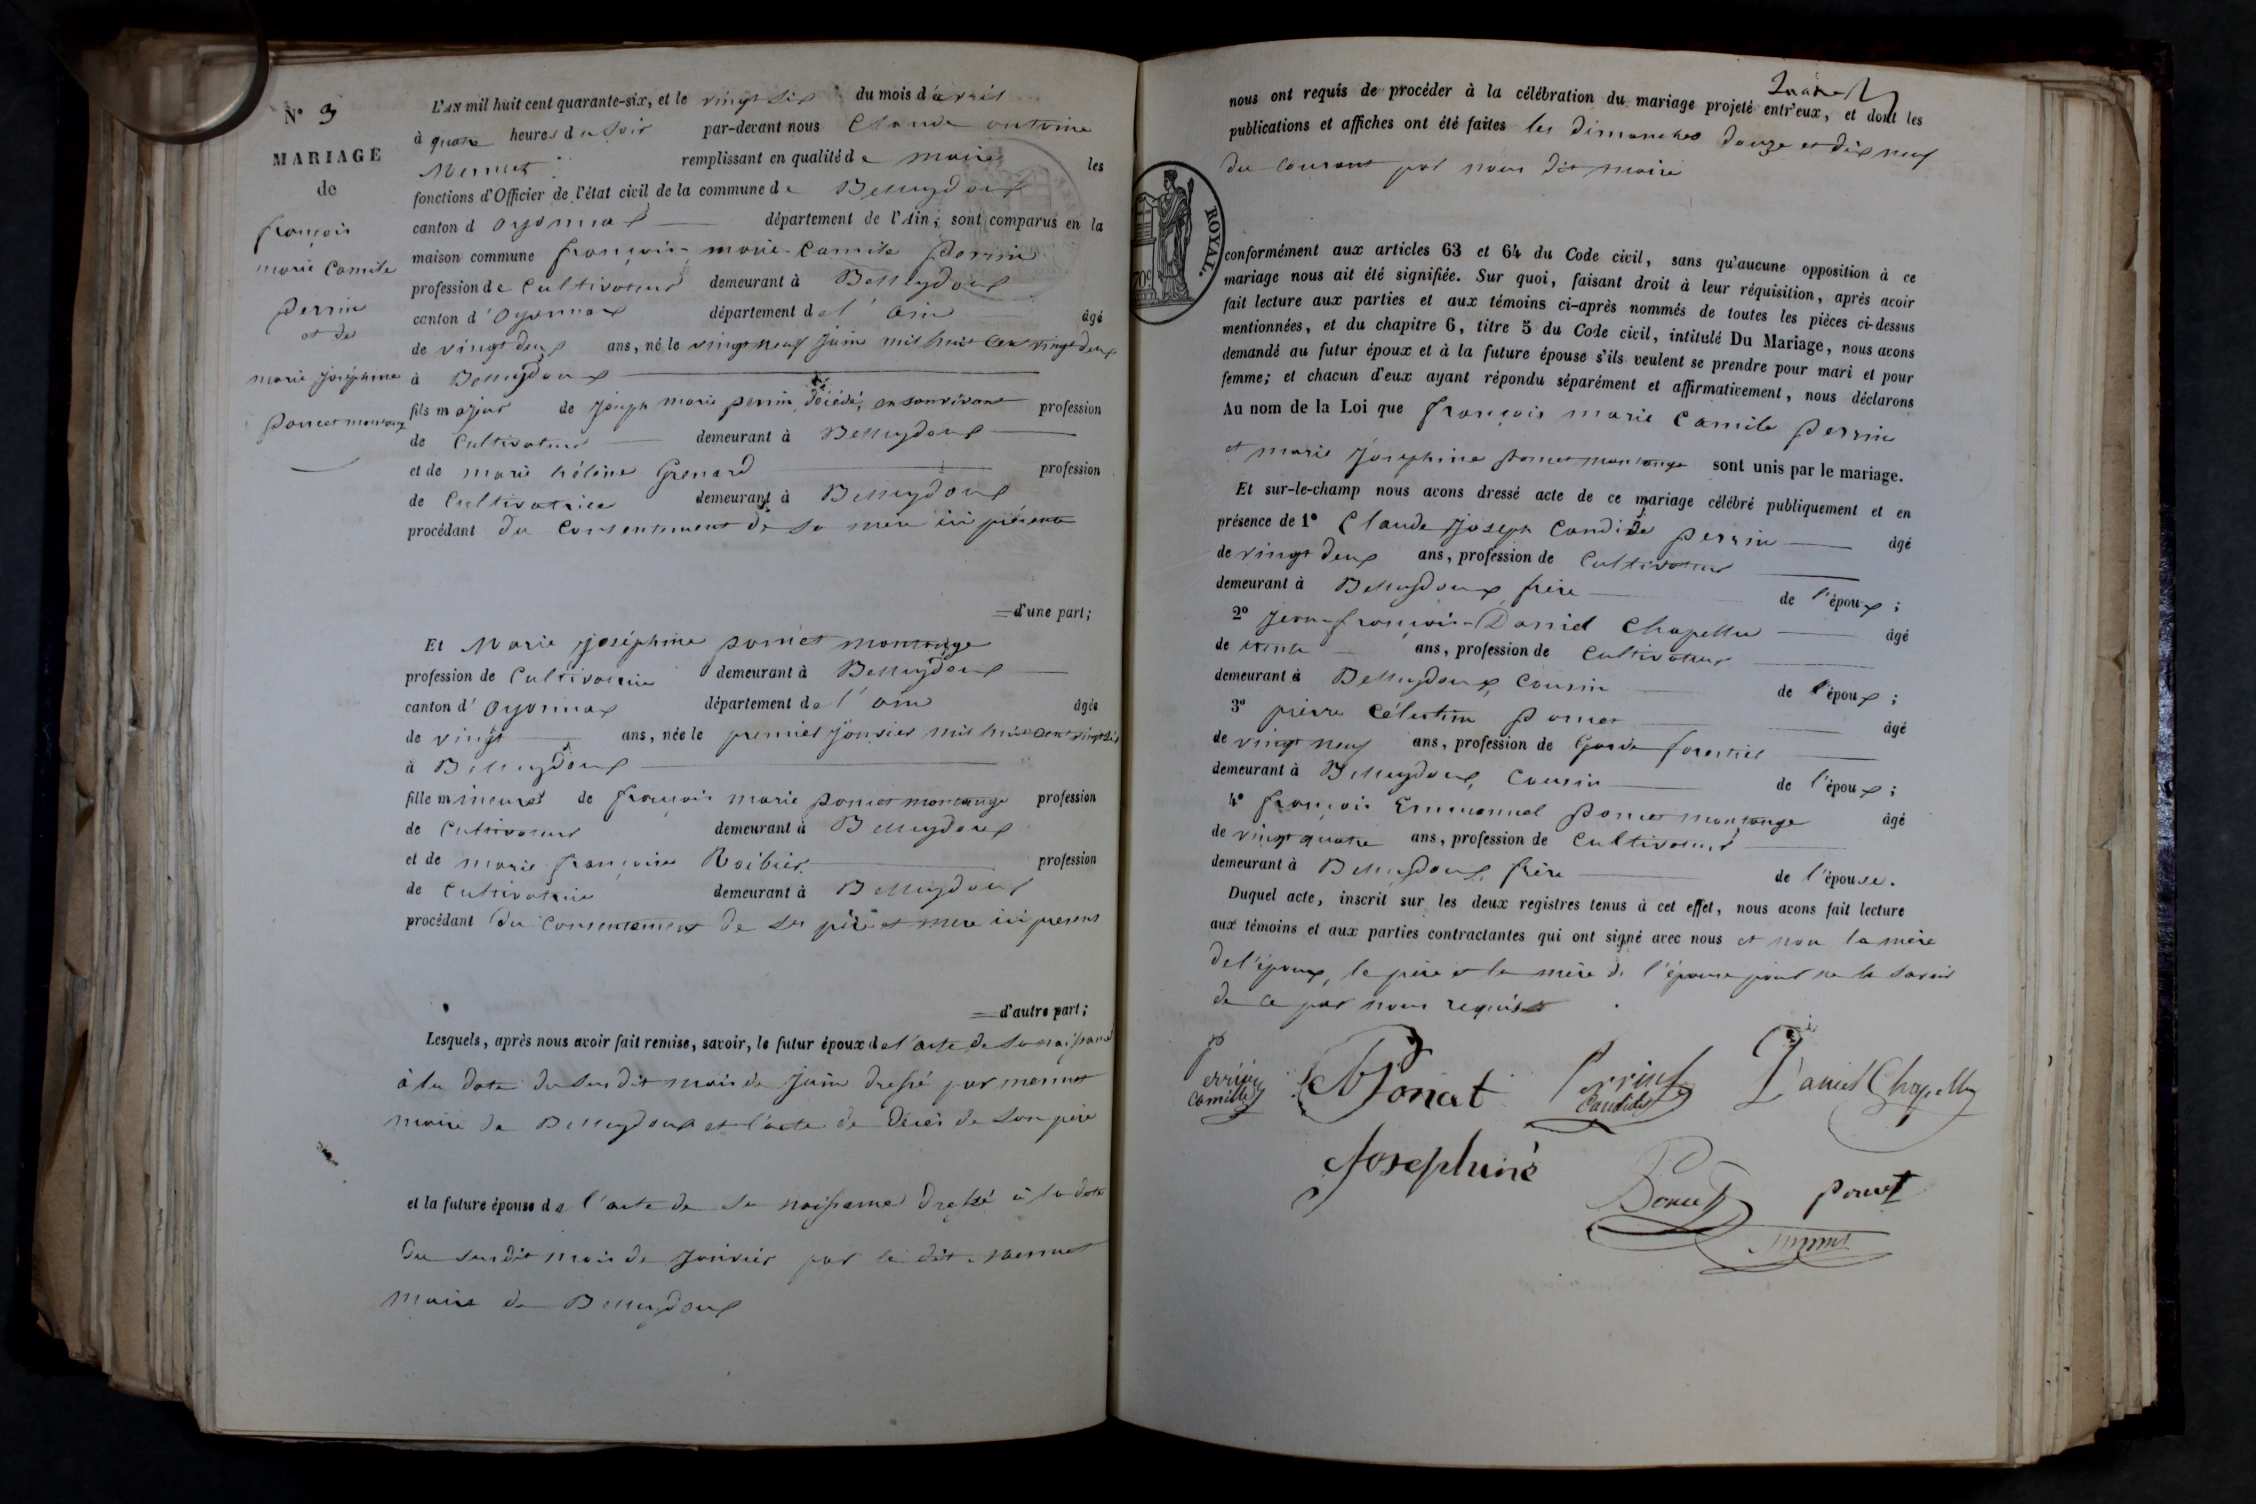 N° 3
MARIAGE
de
françois
marie Camile
perrin
et de
marie joséphine
poncet montange
L'AN mil huit cent quarante-six, et le vingt six du mois d'avril
à quatre heures du soir par-devant nous Claude antoine
Mermet remplissant en qualité de maire les
fonctions d'Officier de l'état civil de la commune de Belleydoux
canton d Oyonnax département de l'Ain, sont comparus en la
maison commune françois marie Camile perrin
profession de Cultivateur demeurant à Belleydoux
canton d'Oyonnax département de l'ain âgé
de vingt deux ans, né le vingt neuf juin mil huit cent vingt deux
à Belleydoux
fils majeur de joseph marie perrin, décédé, en son vivant profession
de Cultivateur demeurant à Belleydoux
et de marie hélène Grenard profession
de Cultivatrice demeurant à Belleydoux
procédant du Consentement de sa mère ici présente
d'une part;
Et Marie joséphine poncet montange
profession de Cultivatrice demeurant à Belleydoux
canton d'Oyonnax département de l'ain âgée
de vingt ans, née le premier janvier mil huit cent vingt six
à Belleydoux
fille mineure de françois marie poncet montange profession
de Cultivateur demeurant à Belleydoux
et de marie françoise Roibier profession
de Cultivatrice demeurant à Belleydoux
procédant du Consentement de ses père et mère ici présens
d'autre part;
Lesquels, après nous avoir fait remise, savoir, le futur époux de l'acte de sa naissance
à la date du susdit mois de juin dressé par mermet
maire de Belleydoux et l'acte de Décès de son père
et la future épouse de l'acte de sa naissance dressé à la date
du susdit mois de janvier par le dit mermet
maire de Belleydoux
nous ont requis de procéder à la célébration du mariage projeté entr'eux, et dont les
publications et affiches ont été faites les dimanches douze et dix neuf
du courant par nous dit maire
ROYAL.
conformément aux articles 63 et 64 du Code civil, sans qu'aucune opposition à ce
mariage nous ait été signifiée. Sur quoi, faisant droit à leur réquisition, après avoir
fait lecture aux parties et aux témoins ci-après nommés de toutes les pièces ci-dessus
mentionnées, et du chapitre 6, titre 5 du Code civil, intitulé Du Mariage, nous avons
demandé au futur époux et à la future épouse s'ils veulent se prendre pour mari et pour
femme; et chacun d'eux ayant répondu séparément et affirmativement, nous déclarons
Au nom de la Loi que françois marie Camile perrin
et marie joséphine poncet montange sont unis par le mariage.
Et sur-le-champ nous avons dressé acte de ce mariage célébré publiquement et en
présence de 1° Claude joseph Candide perrin âgé
de vingt deux ans, profession de Cultivateur
demeurant à Belleydoux, frère de l'époux;
2° jean françois Daniel Chapellu âgé
de trente ans, profession de Cultivateur
demeurant à Belleydoux, Cousin de l'époux;
3° pierre Célestin poncet âgé
de vingt neuf ans, profession de Garde forestier
demeurant à Belleydoux, Cousin de l'époux;
4° françois Emmanuel poncet montange âgé
de vingt quatre ans, profession de Cultivateur
demeurant à Belleydoux, frère de l'épouse.
Duquel acte, inscrit sur les deux registres tenus à cet effet, nous avons fait lecture
aux témoins et aux parties contractantes qui ont signé avec nous et non la mère
de l'époux, le père et la mère de l'épouse pour ne le savoir
de ce par nous requis
perrin
Camille
Perrin
Candide
Daniel Chapellu
Josephine
Poncet
poncet
Mermet